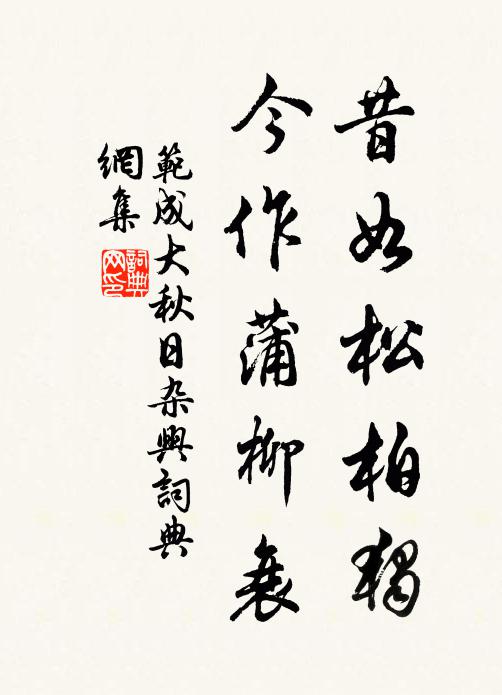 昔如松柏獨
今作蒲柳衰
範成大秋日杂興詞典
網集
詞典
网印